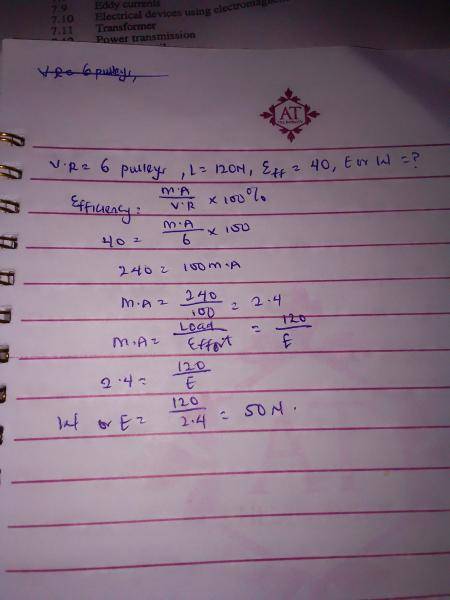 7.9 Eddy currents
7.10 Electrical devices using
7.11 Transformer
7.12 Power transmission
V.R = 6 pulleys,
AT
V.R = 6 pulleys, L = 120N, Eff = 40, E or W = ?
Efficiency = M.A / V.R × 100%
40 = M.A / 6 × 100
240 = 100 M.A
M.A = 240 / 100 = 2.4
M.A = Load / Effort = 120 / E
2.4 = 120 / E
W or E = 120 / 2.4 = 50N.